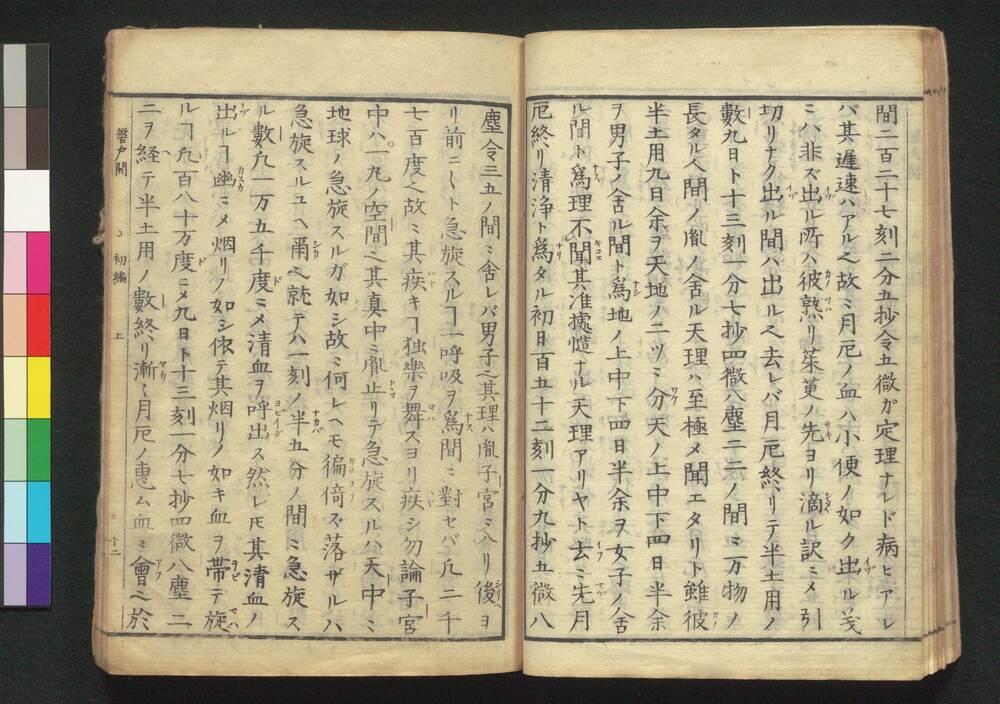 間二百二十七刻二分五抄令五微ガ定理ナレド病ヒアレ
バ其遲速ハアル之故ミ月厄ノ血ハ小便ノ如ク出ル美
ミハ非ズ出ル所ハ彼熟リ茱萸ノ先ヨリ滴ル訳ミメ引
切リナク出ル間ハ出ルヘ去レバ月厄終リテ半土用ノ
數九日ト十三刻一分七抄四微八塵二二ノ間ミ万物ノ
長タル人間ノ胤ノ舎ル天理ハ至極メ聞エタリト雖彼
半土用九日余ヲ天地ノ二ツミ分天ノ上中下四日半余
ヲ男子ノ舎ル間ト為地ノ上中下四日半余ヲ女子ノ舎
ル間ト為理不聞其准據慥ナル天理アリヤト去ミ先月
厄終リ清浄ト為タル初日百五十二刻一分九抄五微八
塵令三五ノ間ミ舎レバ男子之其理ハ胤子宮ミ入リ後ヲ
リ前ニ〱ト急旋スルヿ一呼吸ヲ為間ミ對セバ凢二千
七百度之故ミ其疾キヿ独樂ヲ舞スヨリ疾シ勿論子宮
中ハ一丸ノ空間之其真中ミ胤止リテ急旋スルハ天中ミ
地球ノ急旋スルガ如シ故ミ何レヘモ徧倚ズ落ザルハ
急旋スルユヘ甬之就テハ一刻ノ半五分ノ間ミ急旋ス
ル數凢一万五千度ミメ清血ヲ呼出ス然レ𪜈其清血ノ
出ルヿ幽ミメ烟リノ如シ依テ其烟リノ如キ血ヲ帯テ旋
ルヿ凢百八十万度ミメ九日ト十三刻一分七抄四微八塵二
ニヲ経テ半土用ノ數終リ漸〻月厄ノ惠ム血ミ會之於
磐戸開
初編
上
十二